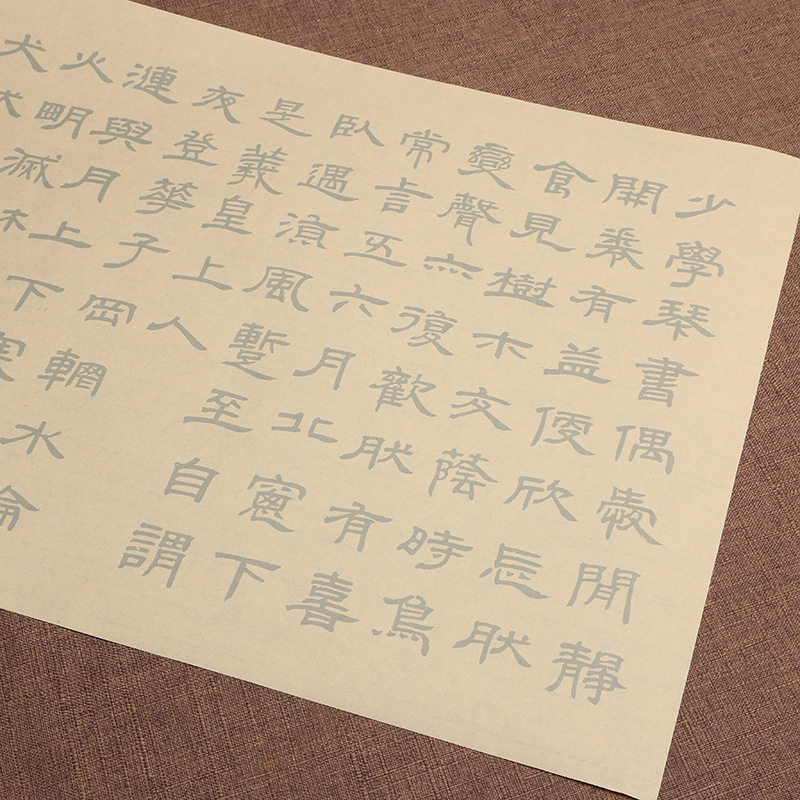 少學琴書偶愛閒靜
開卷有益便欣忘肰
食見樹木交蔭時鳥
變聲亦復歡肰有喜
常言五六月北窗下
臥遇涼風暫至自謂
是羲皇上人
夜登華子岡輞水淪
漣與月上下寒
火明滅林
犬吠